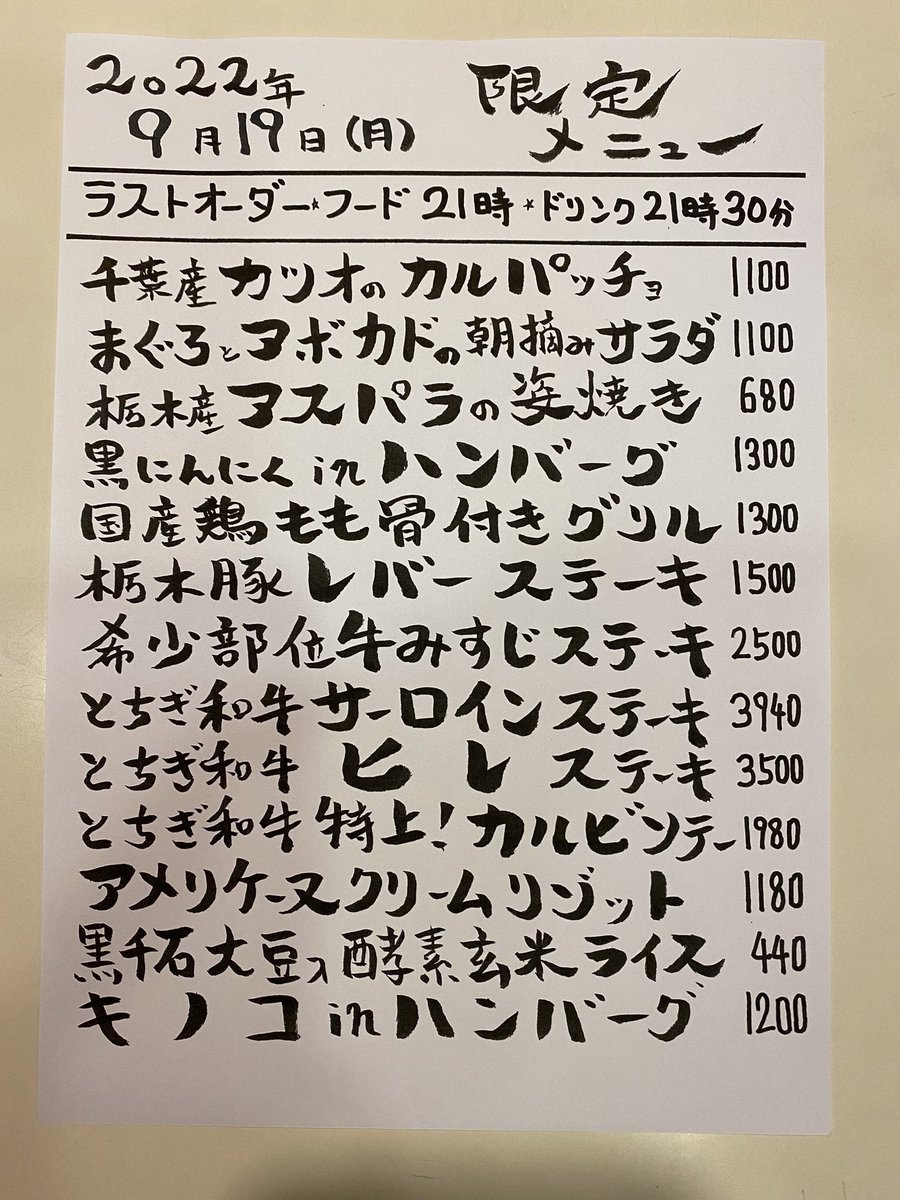 2022年
9月19日(月)
限定
メニュー
ラストオーダー☆フード 21時☆ドリンク21時30分
千葉産カツオのカルパッチョ 1100
まぐろとアボカドの朝摘みサラダ 1100
栃木産アスパラの姿焼き 680
黒にんにくinハンバーグ 1300
国産鶏もも骨付きグリル 1300
栃木豚レバーステーキ 1500
希少部位牛みすじステーキ 2500
とちぎ和牛サーロインステーキ 3940
とちぎ和牛ヒレステーキ 3500
とちぎ和牛特上!カルビンテー 1980
アメリケーヌクリームリゾット 1180
黒千石大豆入酵素玄米ライス 440
キノコinハンバーグ 1200